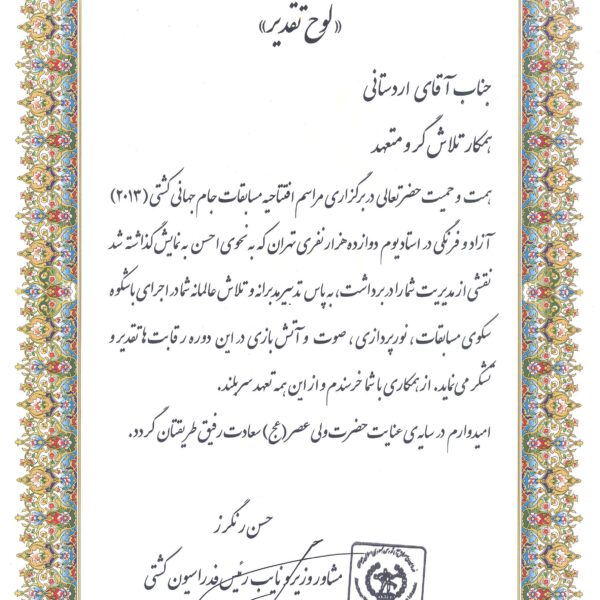 «لوح تقدیر»
جناب آقای اردستانی
همکار تلاش گر و متعهد
همت و حمیت حضرتعالی در برگزاری مراسم افتتاحیه مسابقات جام جهانی کشتی (۲۰۱۳)
آزاد و فرنگی در استادیوم دوازده هزار نفری تهران که به نحوی احسن به نمایش گذاشته شد
نقشی از مدیریت شما را در برداشت، به پاس تدبیر مدبرانه و تلاش عالمانه شما در اجرای با شکوه
سکوی مسابقات، نورپردازی، صوت و آتش بازی در این دوره رقابت ها تقدیر و
تشکر می نماید. از همکاری با شما خرسندم و از این همه تعهد سربلند.
امیدوارم در سایه ی عنایت حضرت ولی عصر (عج) سعادت رفیق طریقتان گردد.
حسن رنگرز
مشاور وزیر و نایب رئیس فدراسیون کشتی